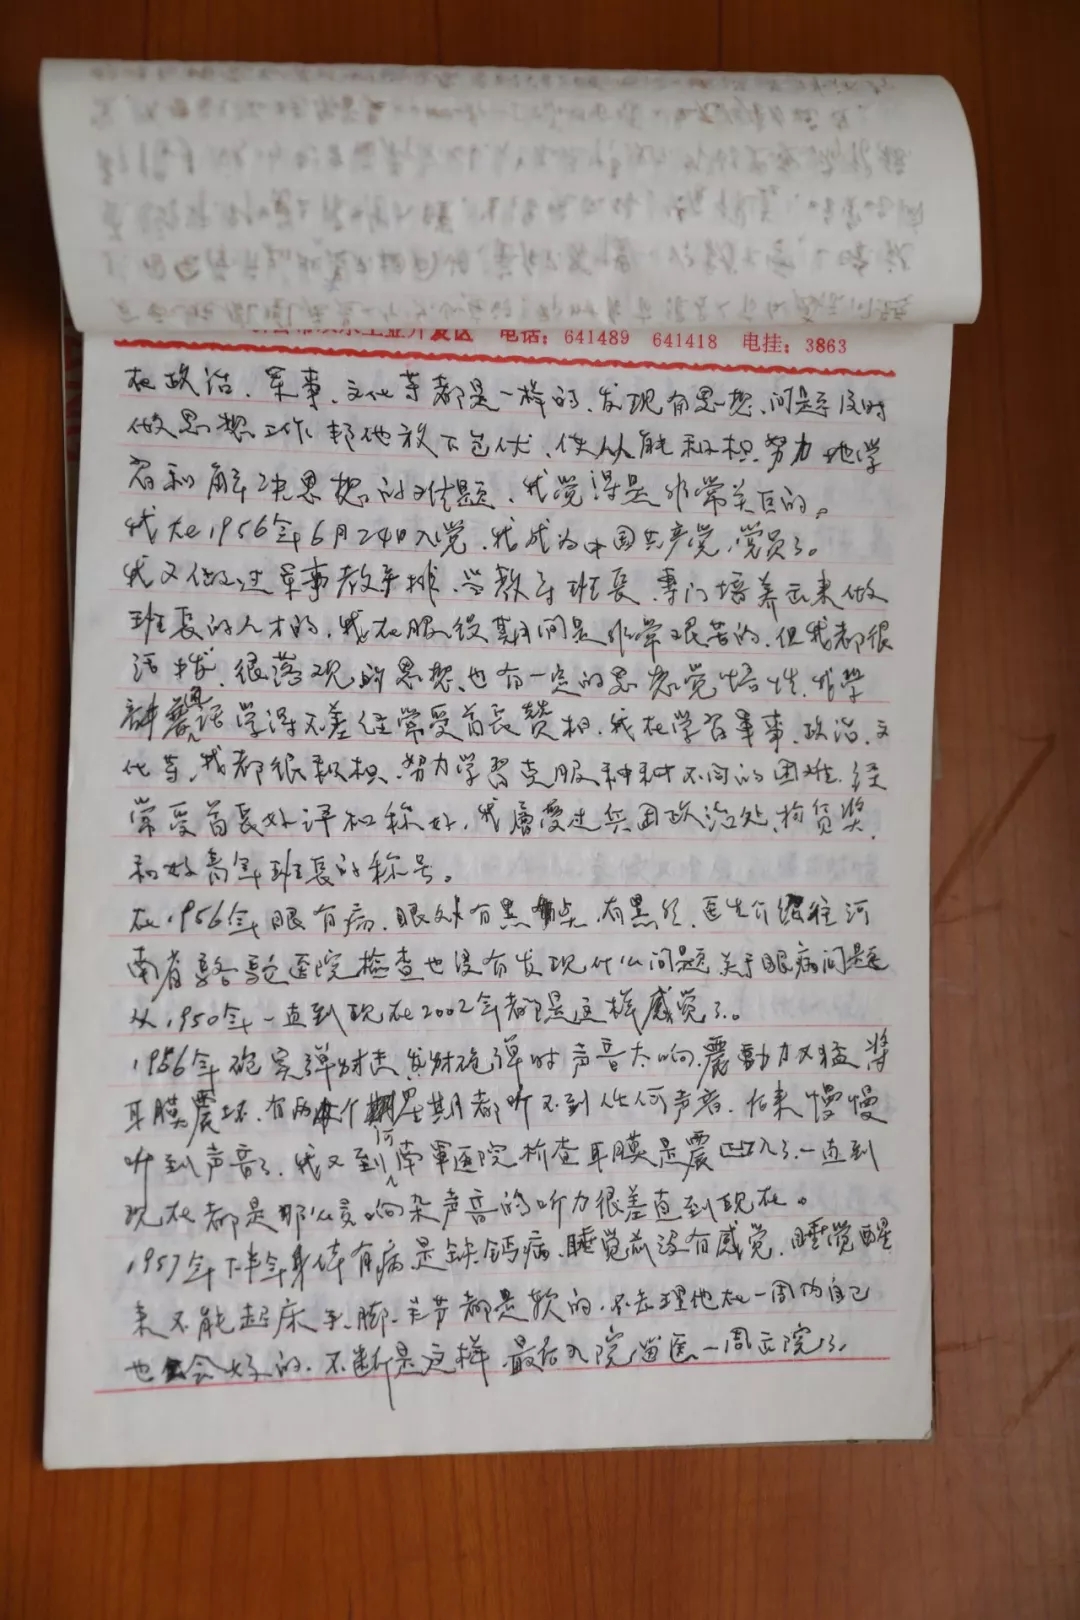 工业开发区 电话：641489 641418 电挂：3863
在政治、军事、文化等都是一样的、发现有思想、问题及时
做思想工作、帮他放下包伏、使从能积极努力地学
习和解决思想的难题、我觉得是非常关巨的。
我在1956年6月24日入党、我成为中国共产党、党员了。
我又做过军事教导排、当教导班长、专门培养出来做
班长的人才的、我在服役期间是非常艰苦的、但我都很
活拔、很落观的思想、也有一定的思想觉悟性、非学
学得不差经常受首长赞相、我在学习军事、政治、文
化等、我都很积极、努力学习克服种种不同的困难、经
常受首长好评和称好、我曾受过兵团政治处、物质奖、
和好青年班长的称号。
在1956年眼有病、眼外有黑点、有黑、医生介绍往河
南省骆驼医院检查也没有发现什么问题、关于眼病问题
从1950年一直到现在2002年都是这样感觉了。
1956年砲实弹射击、发射砲弹时声音太响、震动力又猛、将
耳膜震坏、有两个星期都听不到任何声音、后来慢慢
听到声音了、我又到河南军医院检查耳膜是震凹入了、一直到
现在都是那么响杂声音的听力很差直到现在。
1957年下半年身体有病、是缺钙病、睡觉前没有感觉、睡觉醒
来不能起床、手、脚、关节都是软的、不去理他在一周内自己
也会好的、不断是这样、最后入院留医一周出院了、